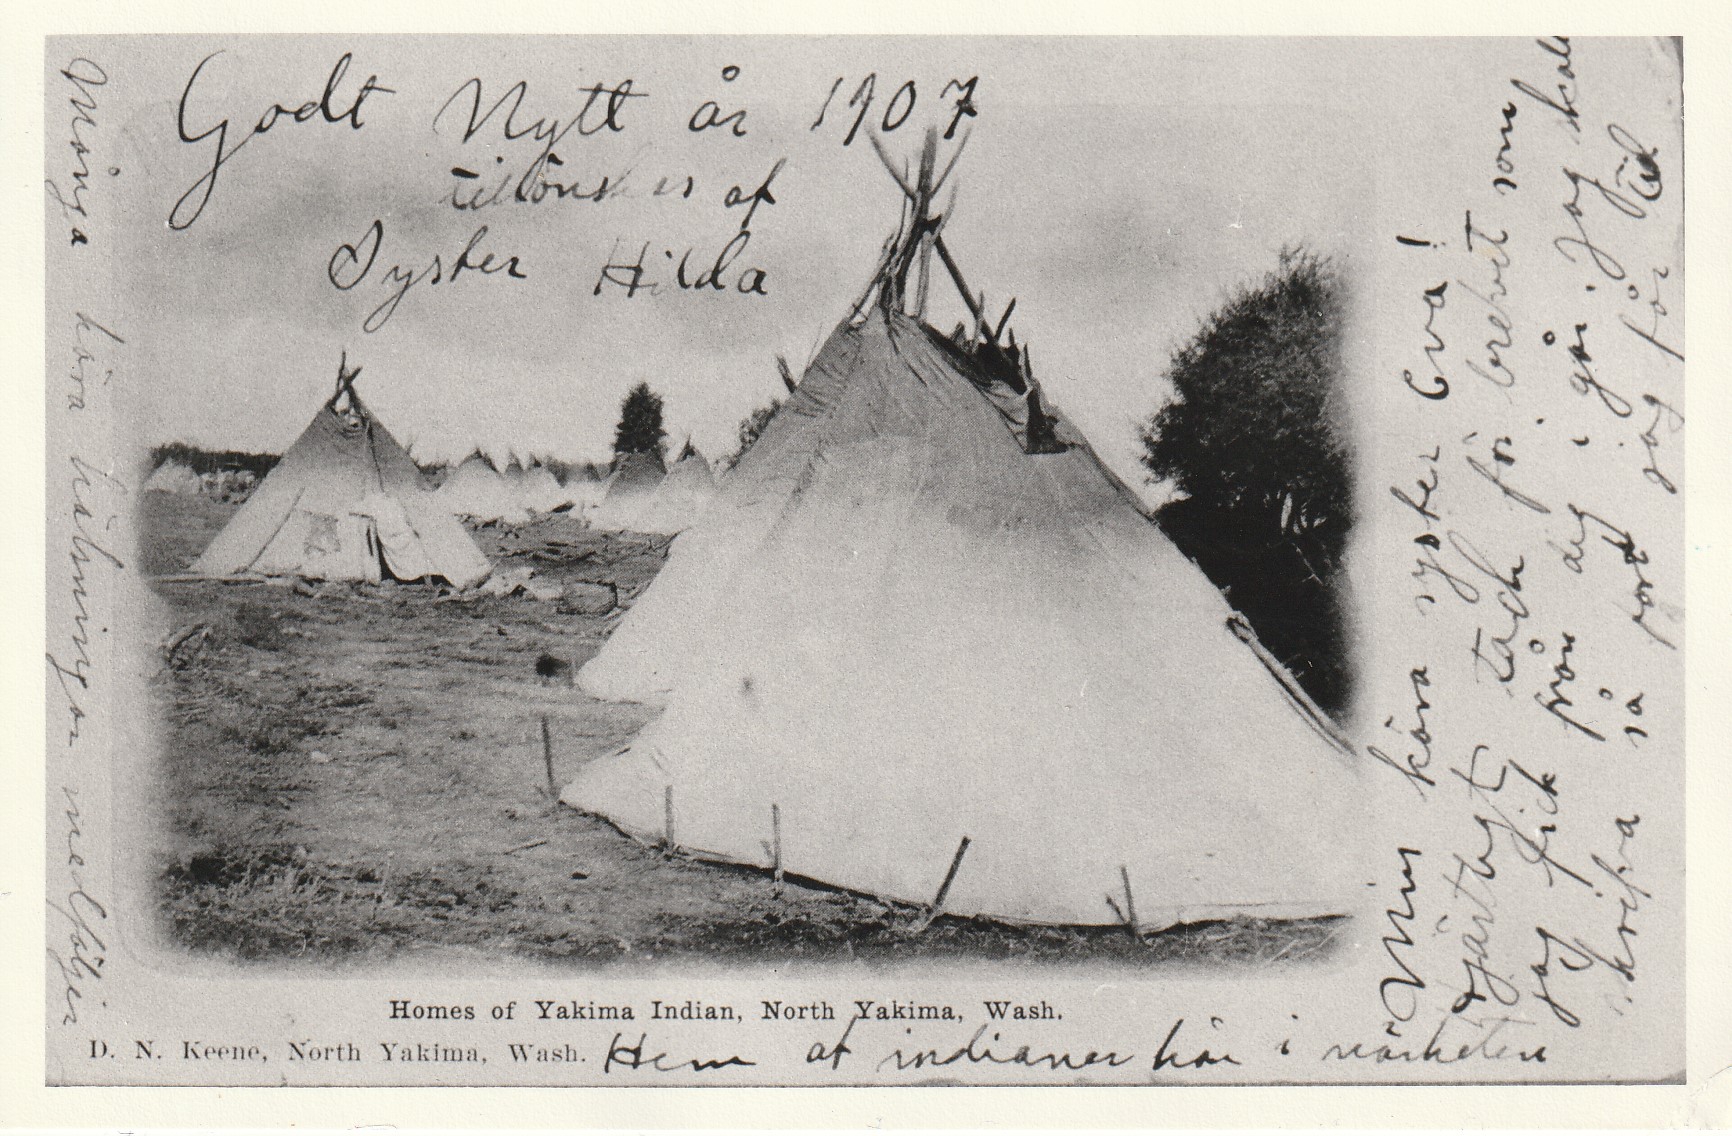 Godt Nytt år 1907
tillönskes af
Syster Hilda
Min kära syster Eva!
Hjärtligt tack för brefvet som
jag fick från dig i går. Jag skall
skrifva så fort jag får tid
Många kära hälsningar medföljer
Homes of Yakima Indian, North Yakima, Wash.
D. N. Keene, North Yakima, Wash.
Hem af indianer här i närheten